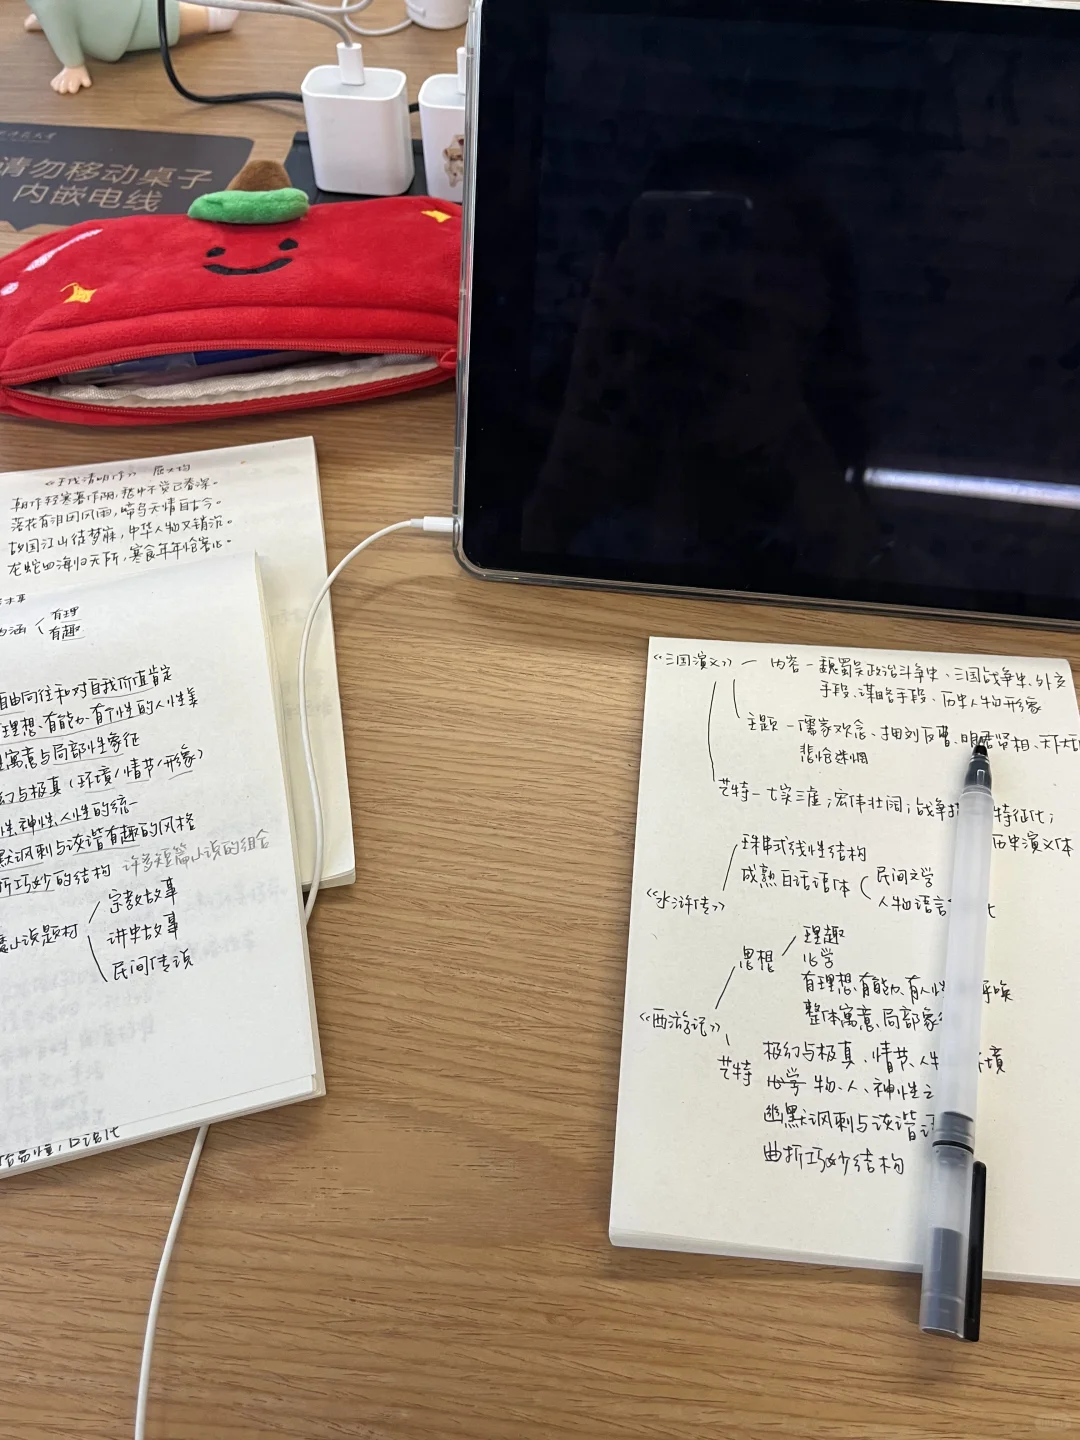 请勿移动桌子
内嵌电线
《壬戌清明作》 屈大均
朝作轻寒暮作阴，愁中不觉已春深。
落花有泪因风雨，啼鸟无情自古今。
故国江山徒梦寐，中华人物又销沉。
龙蛇四海归无所，寒食年年怆客心。
有理
有趣
由向往和对自我价值肯定
理想、有能力、有个性的人性美
寓意与局部性象征
幻与极真（环境/情节/形象）
性、神性、人性的统一
默讽刺与诙谐有趣的风格
折巧妙的结构 许多短篇小说的组合
小说题材
宗教故事
讲史故事
民间传说
《三国演义》— 内容 — 魏蜀吴政治斗争史、三国战争史、外交
手段、谋略手段、历史人物形象
主题 — 儒家观念、拥刘反曹、明君贤相、天下大
悲怆迷惘
艺特 — 七实三虚；宏伟壮阔；战争 特征化；
历史演义体
《水浒传》
珠串式线性结构
成熟白话语体
民间文学
人物语言 化
《西游记》
思想
理趣
心学
有理想、有能力、有人性 呼唤
整体寓意、局部象
艺特
极幻与极真、情节、人 环境
心学 物、人、神性之
幽默讽刺与诙谐
曲折巧妙结构